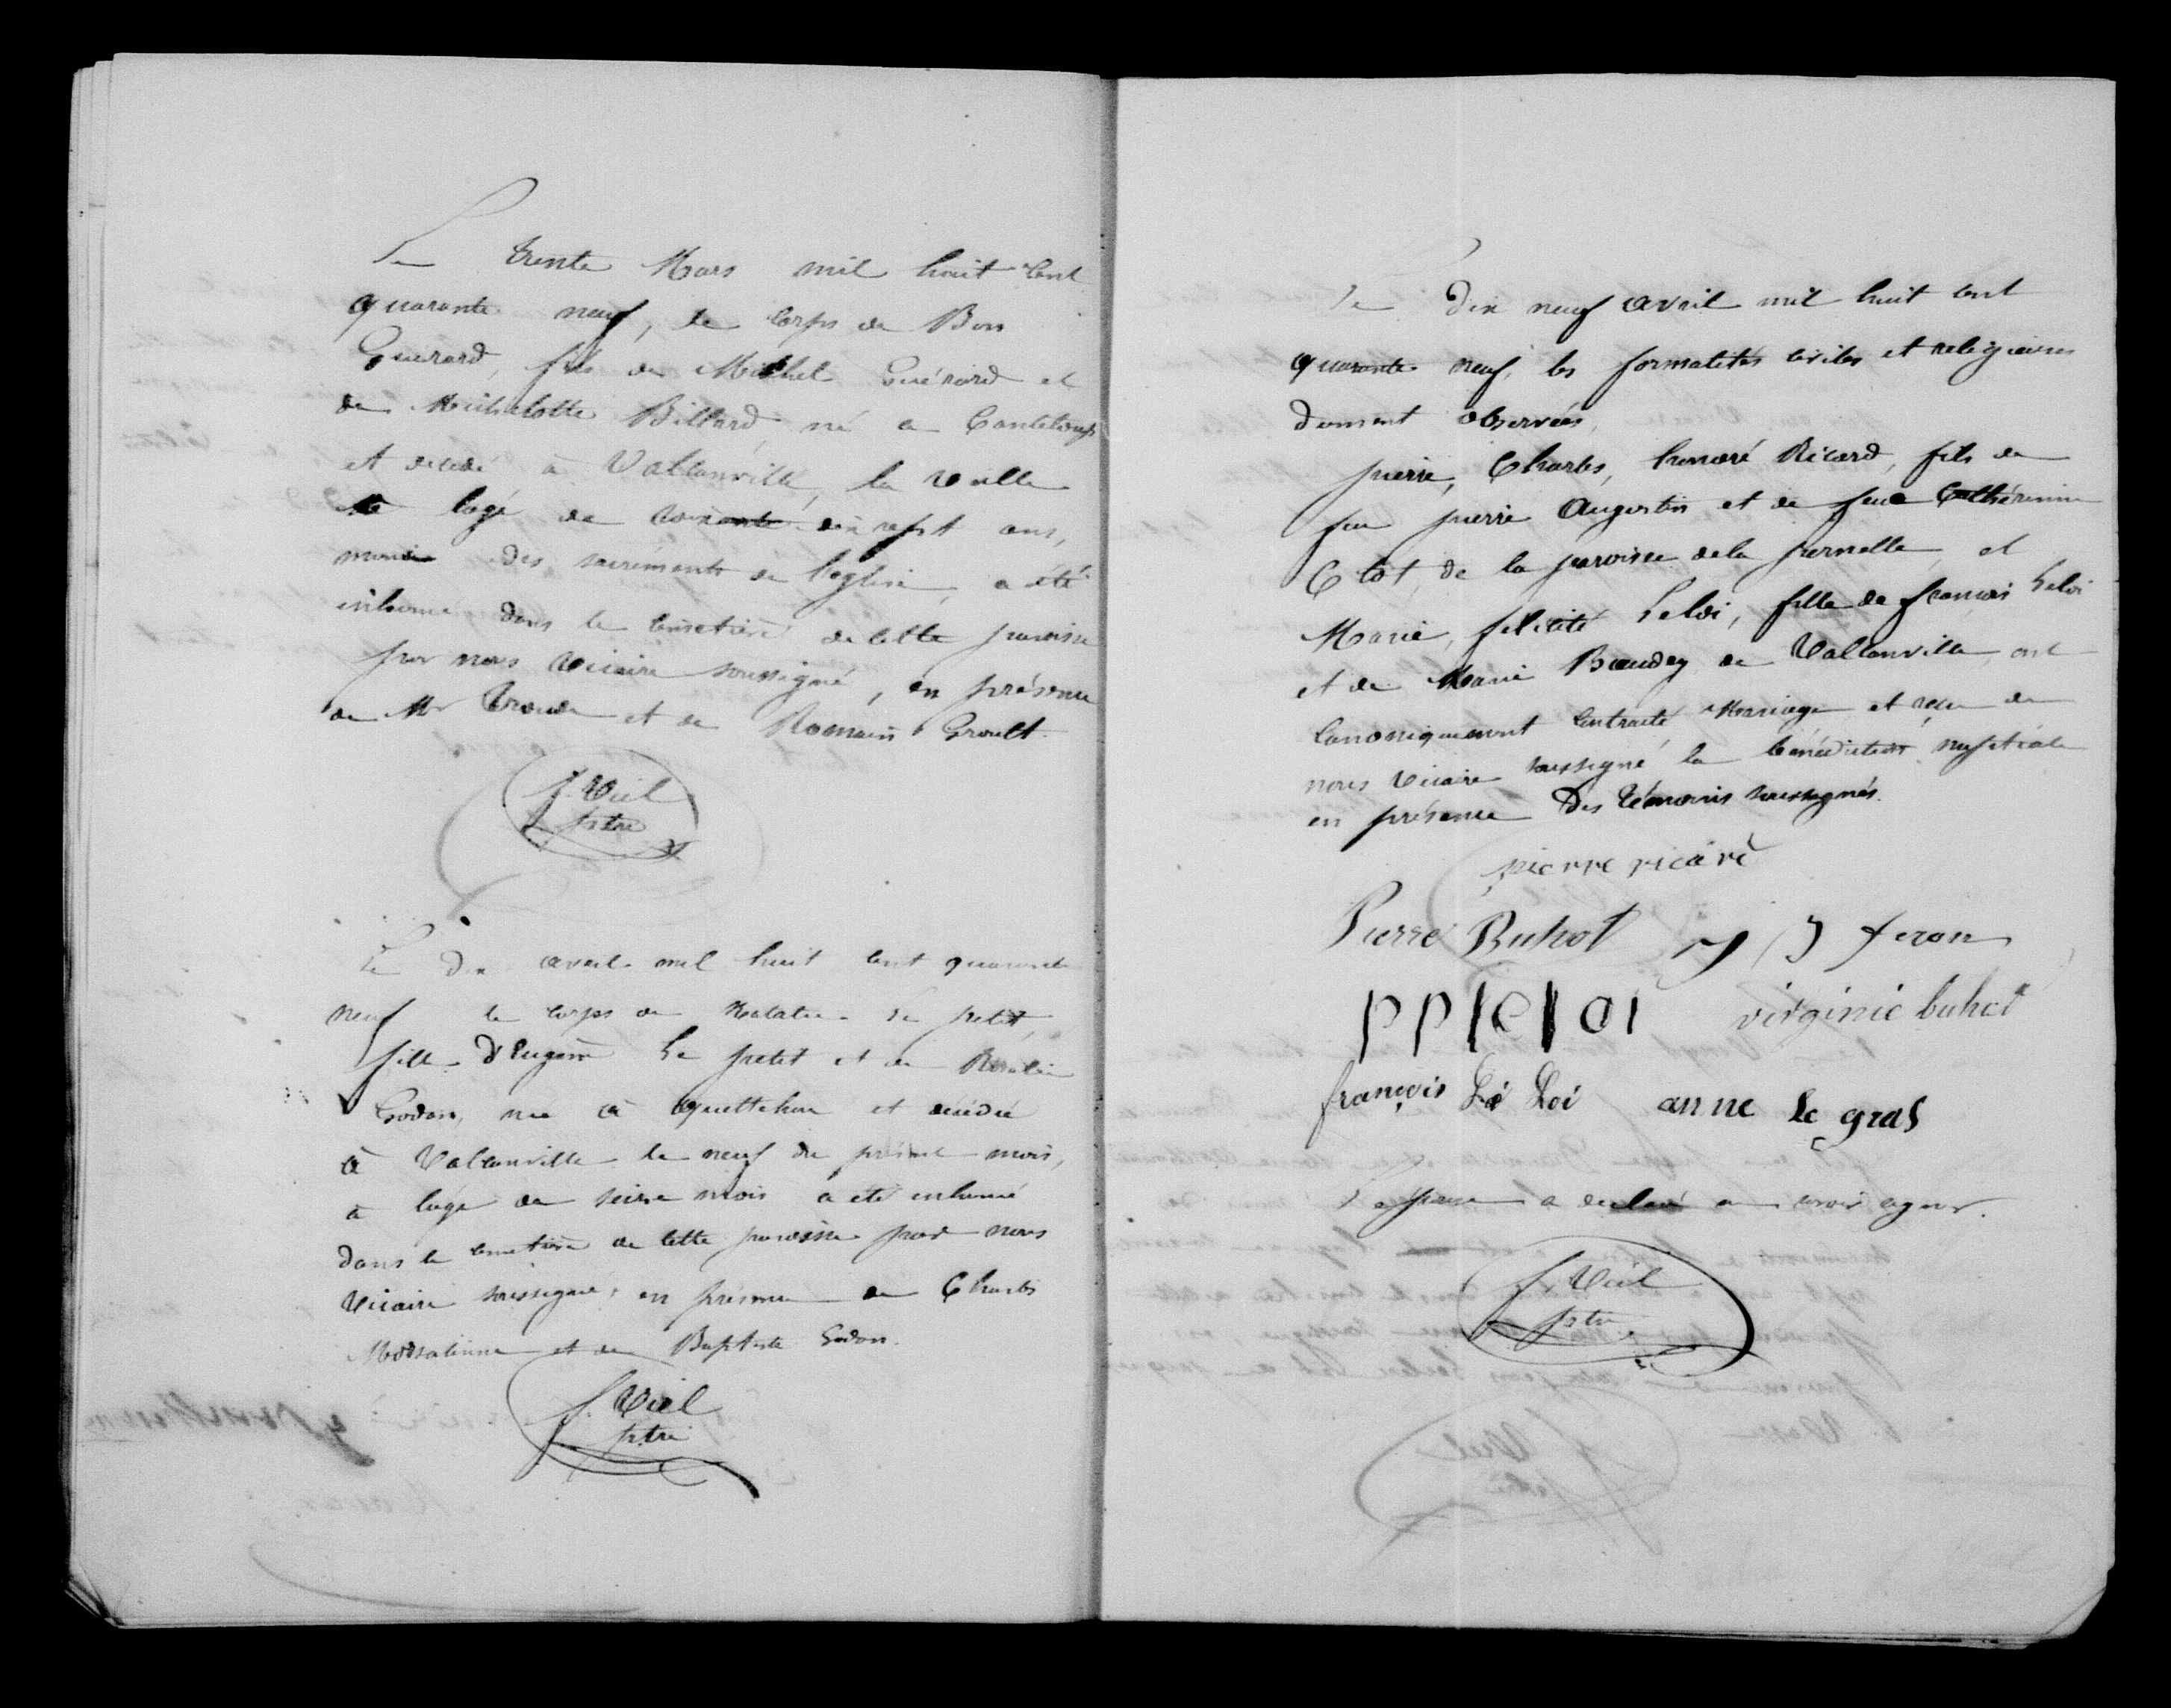 Le trente Mars mil huit cent
quarante neuf, le corps de Bon
Guérard, fils de Michel Guérard et
de Michelotte Billard, né a Canteloup
et décédé à Valcanville, la veille
a lage de soixante dix sept ans,
muni des sacréments de l'eglise, a été
inhumé dans le cimetière de cette paroisse
par nous vicaire soussigné, en présence
de Mr Troude et de Romain Groult.
f. Viel
ptre
Le dix avril mil huit cent quarante
neuf le corps de Le petit,
fille d'Eugène Le petit et de Rosalie
Godon, née à quettehou et décédée
à Valcanville le neuf du présent mois,
a lage de seize mois a été inhumé
dans le cimetière de cette paroisse par nous
vicaire soussigné, en présence de Charles
et de Baptiste Godon.
f. Viel
ptre
Le dix neuf avril mil huit cent
quarante neuf, les formalités civiles et religieuses
dument observées,
pierre, Charles, honoré Ricard, fils de
feu pierre Augustin et de feue Cathérine
Clot, de la paroisse de la pernelle, et
Marie, felicité Leloi, fille de francois Leloi
et de Marie Beaudry de Valcanville, ont
canoniquement contracté Mariage et reçu de
nous vicaire soussigné la bénédiction nuptiale
en présence des témoins soussignés.
pierre ricard
Pierre Buhot feron
pp le loi virginie buhot
françois Le Loi anne le gras
L'epouse a declaré ne savoir signer.
f. Viel
ptre